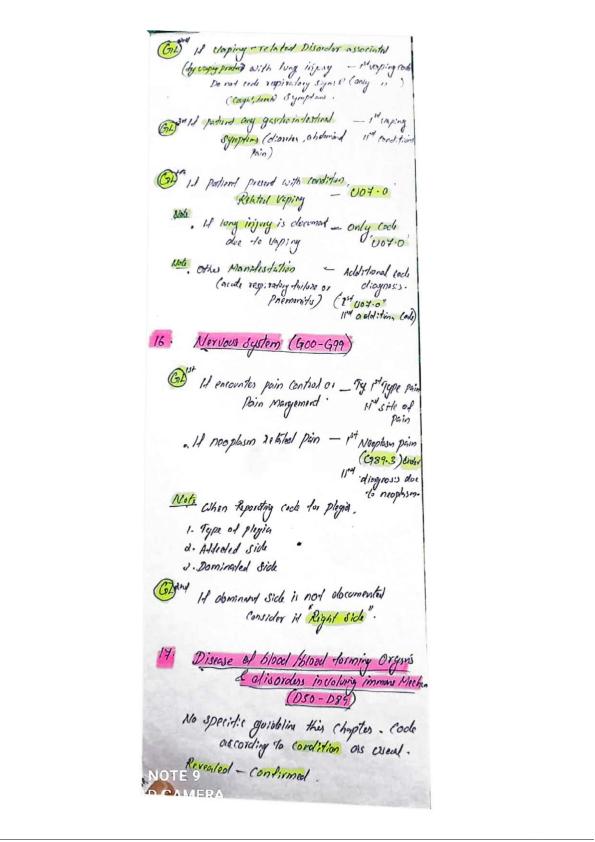 GL 2nd If Vaping-related Disorder associated
(by vaping product) with lung injury — 1st vaping code
Do not code respiratory signs & (only " )
(Cough, ) symptoms.
GL 3rd If patient any gastrointestinal — 1st vaping
symptoms (diarrhea, abdominal IInd condition
Pain)
GL If patient present with condition
Related Vaping — U07.0
Note . If long injury is document — Only Code
due to vaping 'U07.0'
Note . Other Manifestation — Additional code
(acute respiratory failure or diagnosis.
Pneumonitis) (1st U07.0"
IInd addition code)
16. Nervous System (G00-G99)
GL 1st If encounter pain control or — 1st Type pain
Pain Management. IInd site of
pain
. If neoplasm related pain — 1st Neoplasm pain
(G89.3)
IInd diagnosis due
to neoplasm.
Note When Reporting code for plegia.
1. Type of plegia
2. Affected side
3. Dominated side
GL 2nd If dominant side is not documented
consider it "Right side".
17. Disease of blood /blood forming Organs
& disorders involving immune Mechan
(D50-D89)
No specific guideline this chapter. Code
according to condition as usual.
Revealed — Confirmed.
NOTE 9
D CAMERA